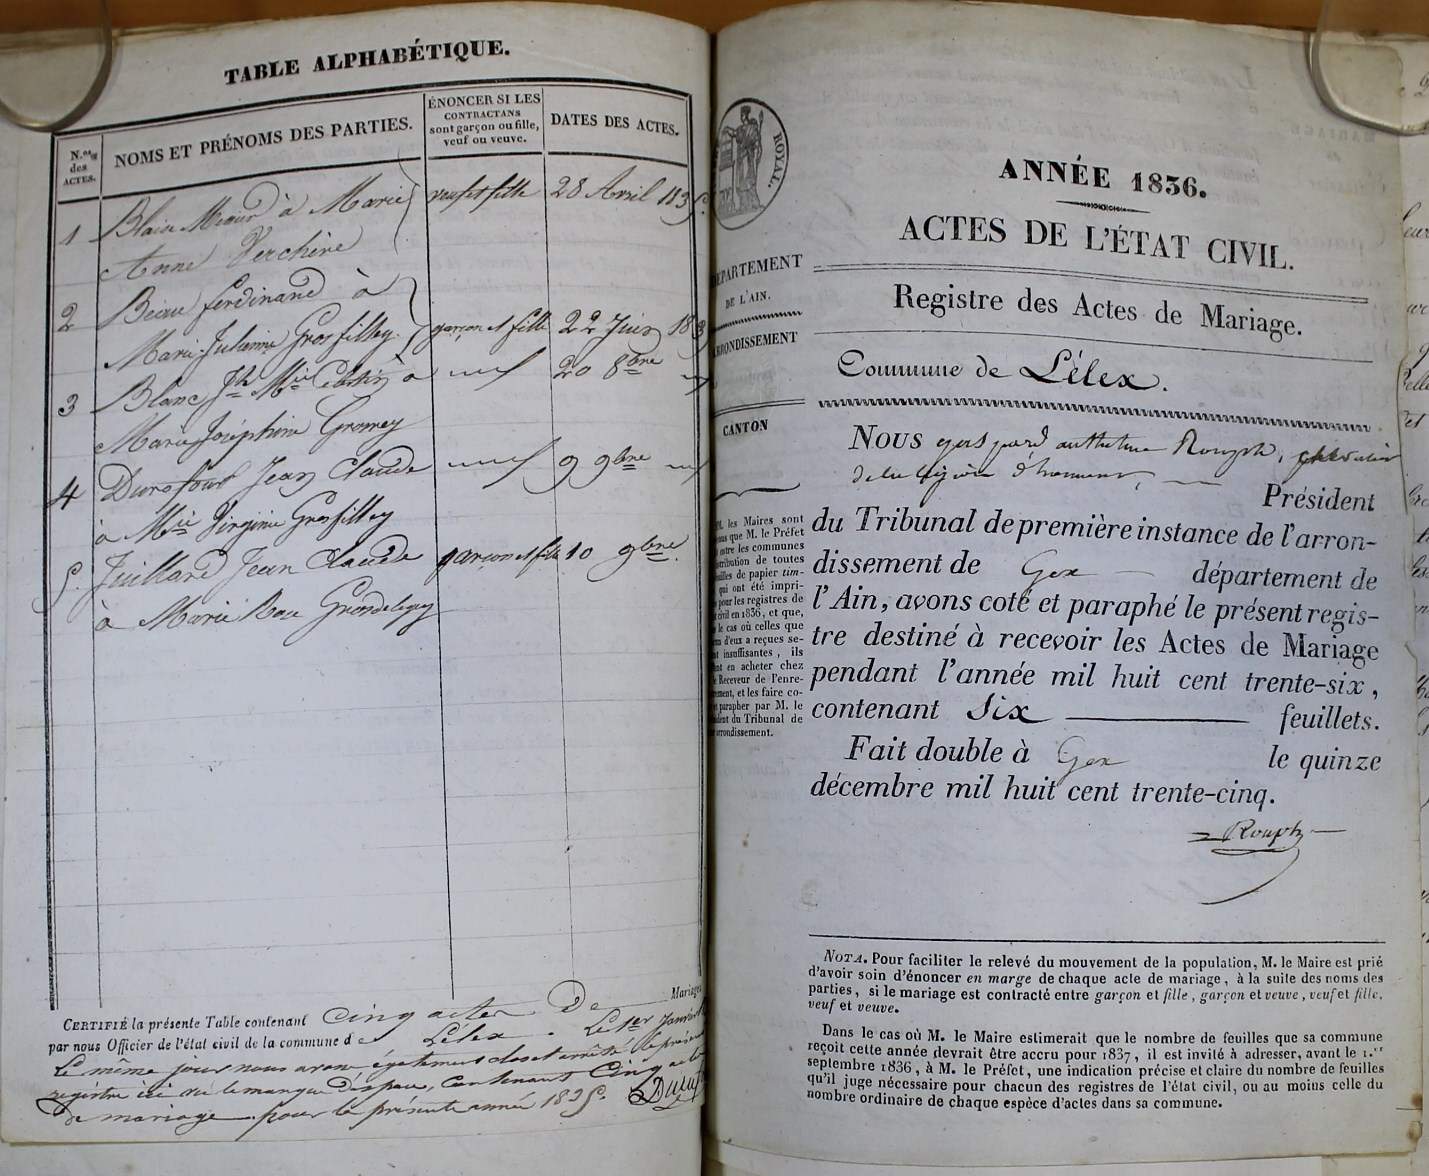 TABLE ALPHABÉTIQUE.
N.os des ACTES.
NOMS ET PRÉNOMS DES PARTIES.
ÉNONCER SI LES
CONTRACTANS
sont garçon ou fille,
veuf ou veuve.
DATES DES ACTES.
1 à Marie veuf et fille 28 Avril 1835.
Anne Verchère
2 Ferdinand à
Marie Julienne Grosfilley garçon et fille 22 Juin 183
3 Blanc Jh Mie à 20 8bre
Marie Joséphine
4 Jean Claude 9 9bre
à Mie Virginie Grosfilley
5. Juilland Jean Claude garçon et fille 10 9bre.
à Marie
CERTIFIÉ la présente Table contenant cinq actes De Mariages
par nous Officier de l'état civil de la commune de Lélex. Le 1er Janvier
Le même jour nous avons également clos et arrêté le présent
registre ici vu le manque d'espace, contenant Cinq actes
de mariage pour la présente année 1835.
ROYAL.
DÉPARTEMENT
DE L'AIN.
ARRONDISSEMENT
CANTON
les Maires sont
que M. le Préfet
entre les communes
distribution de toutes
feuilles de papier tim-
qui ont été impri-
pour les registres de
civil en 1836, et que,
le cas où celles que
d'eux a reçues se-
insuffisantes, ils
en acheter chez
Receveur de l'enre-
et les faire co-
parapher par M. le
du Tribunal de
arrondissement.
ANNÉE 1836.
ACTES DE L'ÉTAT CIVIL.
Registre des Actes de Mariage.
Commune de Lélex.
NOUS Rouph, chevalier
de la légion d'honneur, Président
du Tribunal de première instance de l'arron-
dissement de Gex département de
l'Ain, avons coté et paraphé le présent regis-
tre destiné à recevoir les Actes de Mariage
pendant l'année mil huit cent trente-six,
contenant Six feuillets.
Fait double à Gex le quinze
décembre mil huit cent trente-cinq.
Rouph
NOTA. Pour faciliter le relevé du mouvement de la population, M. le Maire est prié
d'avoir soin d'énoncer en marge de chaque acte de mariage, à la suite des noms des
parties, si le mariage est contracté entre garçon et fille, garçon et veuve, veuf et fille,
veuf et veuve.
Dans le cas où M. le Maire estimerait que le nombre de feuilles que sa commune
reçoit cette année devrait être accru pour 1837, il est invité à adresser, avant le 1.er
septembre 1836, à M. le Préfet, une indication précise et claire du nombre de feuilles
qu'il juge nécessaire pour chacun des registres de l'état civil, ou au moins celle du
nombre ordinaire de chaque espèce d'actes dans sa commune.